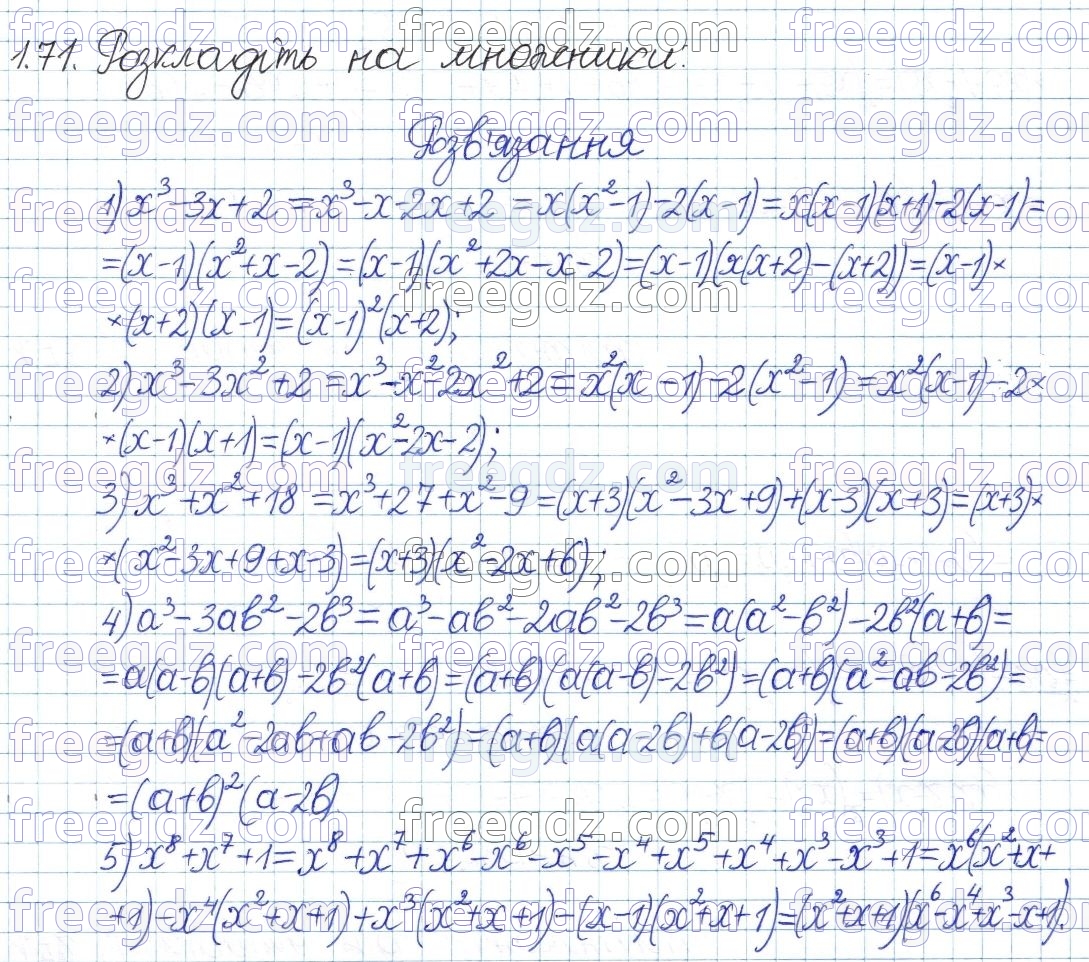 1.71. Розкладіть на множники:
Розв'язання
1) x³-3x+2 = x³-x-2x+2 = x(x²-1)-2(x-1)=x(x-1)(x+1)-2(x-1)=
=(x-1)(x²+x-2)=(x-1)(x²+2x-x-2)=(x-1)(x(x+2)-(x+2))=(x-1)×
×(x+2)(x-1)=(x-1)²(x+2);
2) x³-3x²+2=x³-x²-2x²+2=x²(x-1)-2(x²-1)=x²(x-1)-2×
×(x-1)(x+1)=(x-1)(x²-2x-2);
3) x³+x²+18=x³+27+x²-9=(x+3)(x²-3x+9)+(x-3)(x+3)=(x+3)×
×(x²-3x+9+x-3)=(x+3)(x²-2x+6);
4) a³-3ab²-2b³=a³-ab²-2ab²-2b³=a(a²-b²)-2b²(a+b)=
=a(a-b)(a+b)-2b²(a+b)=(a+b)(a(a-b)-2b²)=(a+b)(a²-ab-2b²)=
=(a+b)(a²-2ab+ab-2b²)=(a+b)(a(a-2b)+b(a-2b))=(a+b)(a-2b)(a+b)=
=(a+b)²(a-2b)
5) x⁸+x⁷+1=x⁸+x⁷+x⁶-x⁶-x⁵-x⁴+x⁵+x⁴+x³-x³+1=x⁶(x²+x+
+1)-x⁴(x²+x+1)+x³(x²+x+1)-(x-1)(x²+x+1)=(x²+x+1)(x⁶-x⁴+x³-x+1).